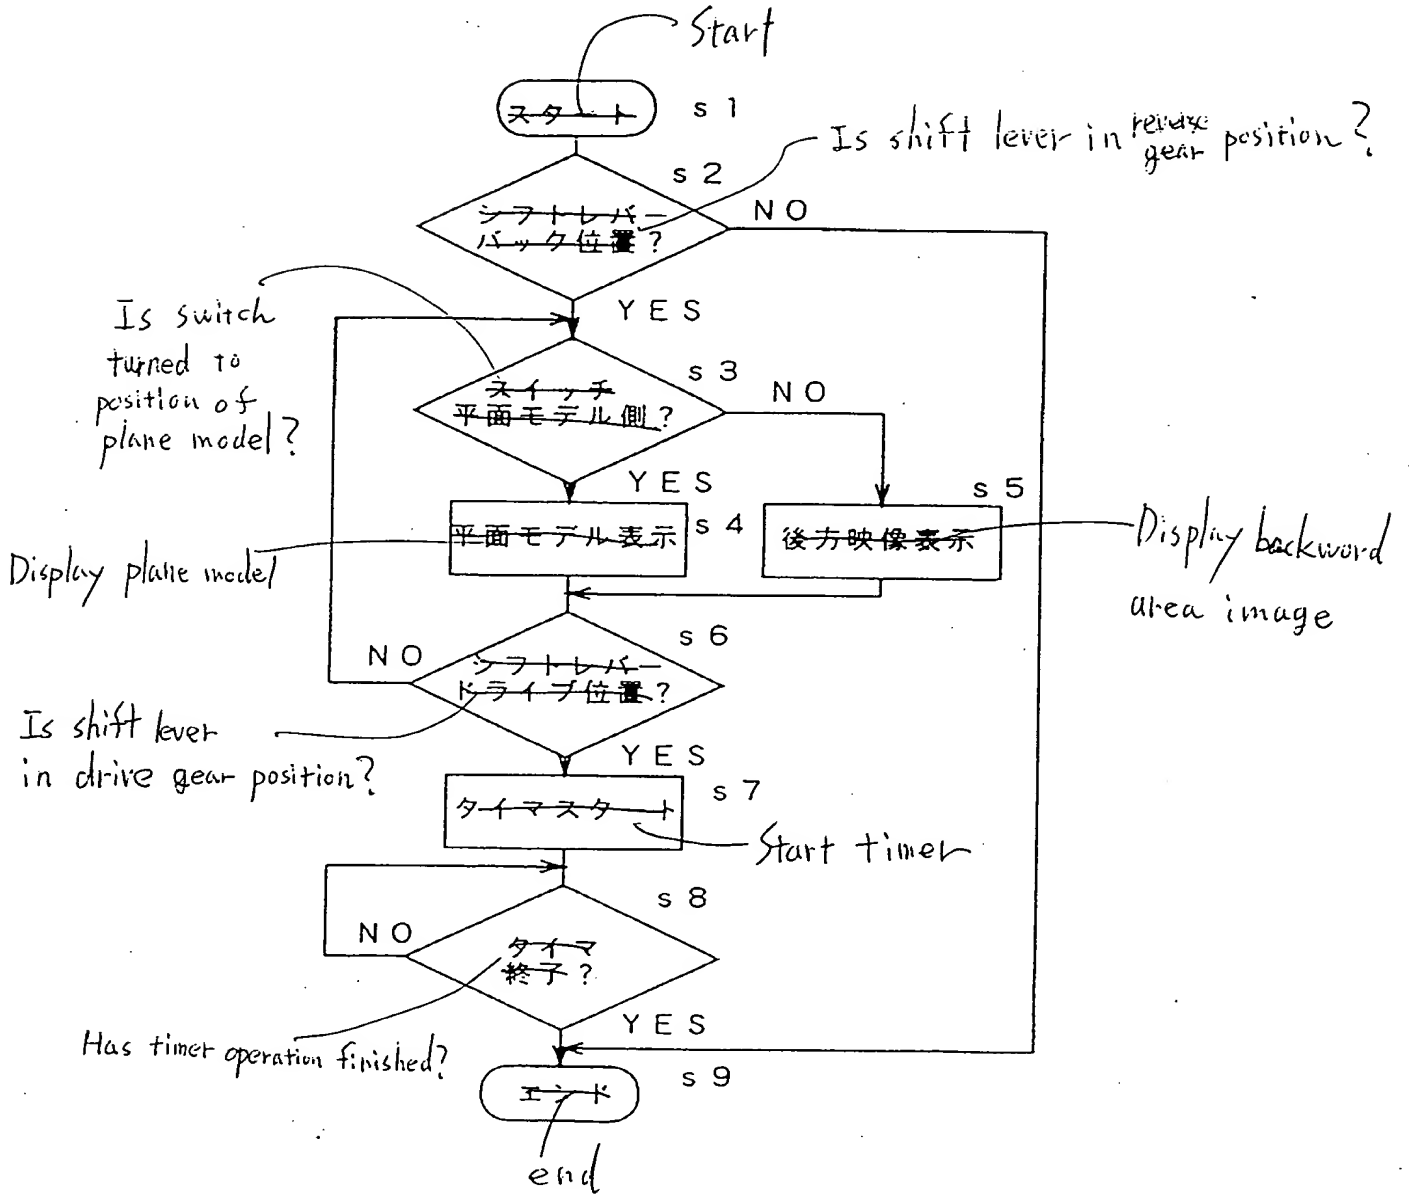 Start
スタート
s1
Is shift lever in reverse
gear position?
s2
シフトレバー
バック位置?
NO
YES
Is switch
turned to
position of
plane model?
s3
スイッチ
平面モデル側?
NO
YES
s4
平面モデル表示
Display plane model
s5
後方映像表示
Display backword
area image
s6
シフトレバー
ドライブ位置?
NO
YES
Is shift lever
in drive gear position?
s7
タイマスタート
Start timer
s8
タイマ
終了?
NO
YES
Has timer operation finished?
s9
エンド
end